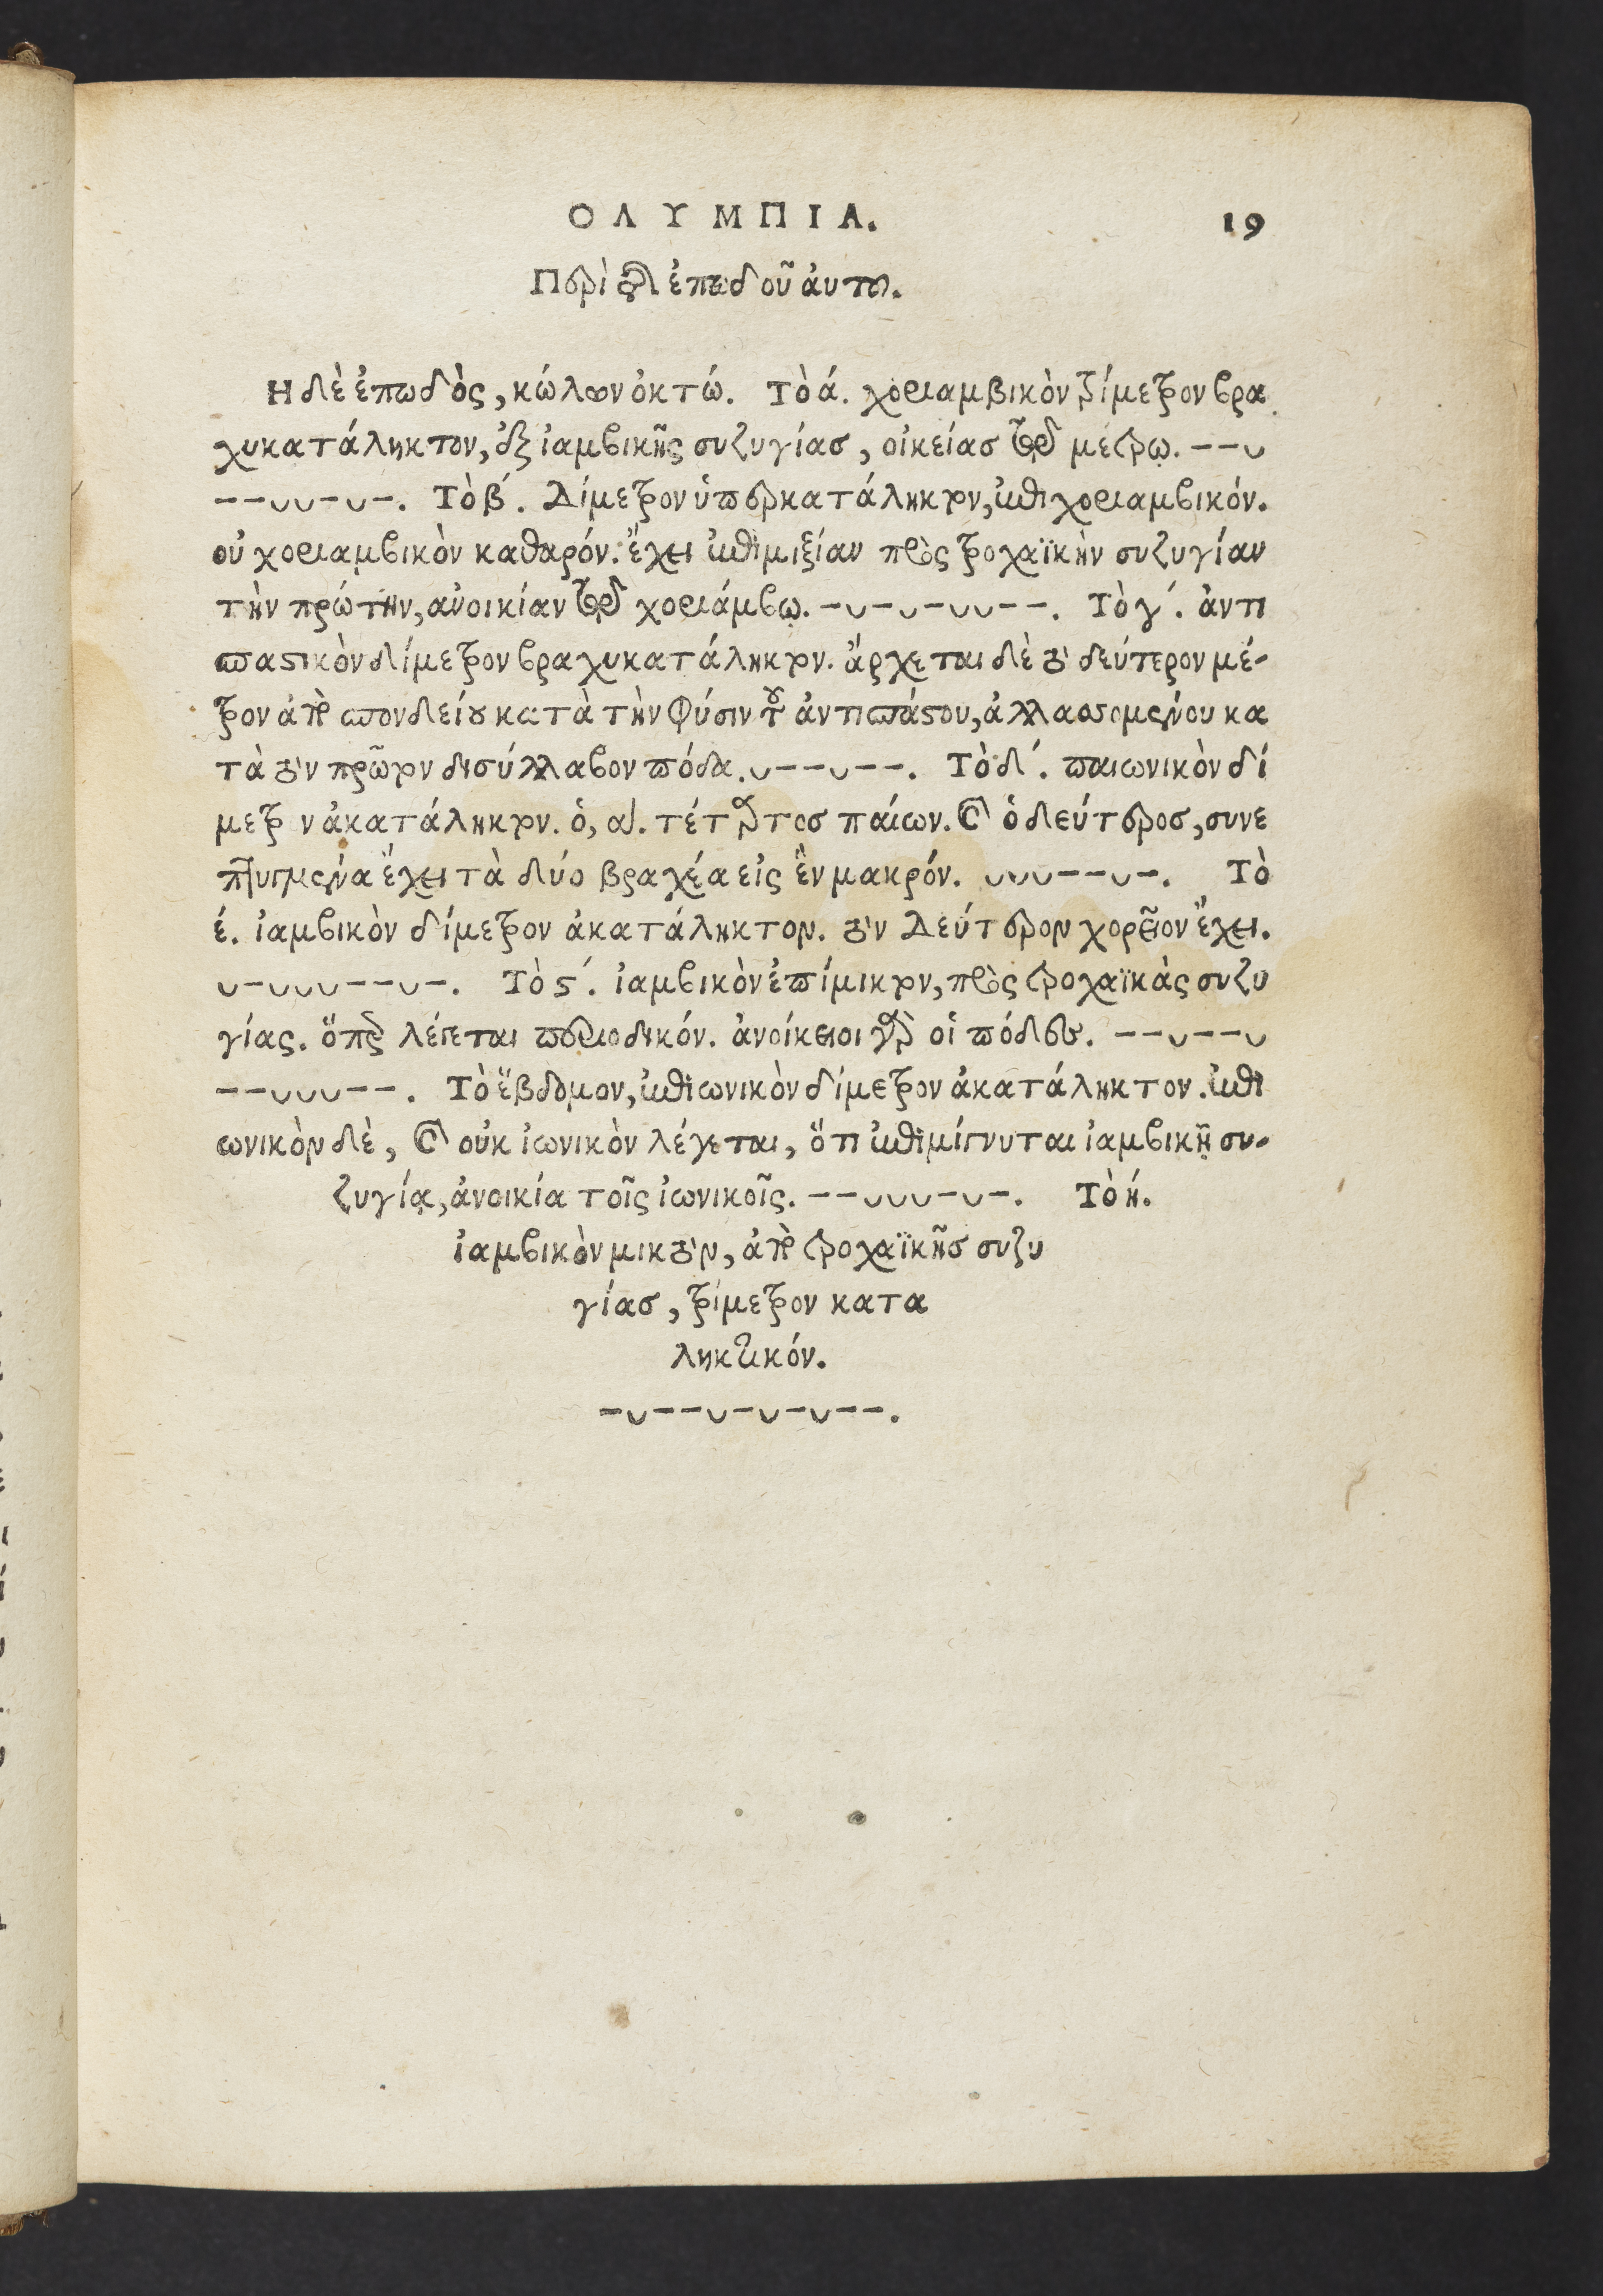 ΟΛΥΜΠΙΑ. 19
Περὶ τοῦ ἐπωδοῦ αὐτῶν.
Η δὲ ἐπωδὸς, κώλων ὀκτώ. Τὸ ά. χοριαμβικὸν τρίμετρον βρα
χυκατάληκτον, ἐξ ἰαμβικῆς συζυγίας, οἰκείας τῷ μέτρῳ. --υ
--υυ-υ-. Τὸ β΄. Δίμετρον ὑπερκατάληκτον, ἐπιχοριαμβικόν.
οὐ χοριαμβικὸν καθαρόν. ἔχει ἐπιμιξίαν πρὸς τροχαϊκὴν συζυγίαν
τὴν πρώτην, ἀνοικίαν τῷ χοριάμβῳ. -υ-υ-υυ--. Τὸ γ΄. ἀντι
σπαστικὸν δίμετρον βραχυκατάληκτον. ἄρχεται δὲ τὸ δεύτερον μέ-
τρον ἀπὸ σπονδείου κατὰ τὴν φύσιν τοῦ ἀντισπάστου, ἀλλασσομένου κα
τὰ τὸν πρῶτον δισύλλαβον πόδα. υ--υ--. Τὸ δ΄. παιωνικὸν δί
μετρ ν ἀκατάληκτον. ὁ, α΄. τέταρτος παίων. καὶ ὁ δεύτερος, συνε
πτυγμένα ἔχει τὰ δύο βραχέα εἰς ἓν μακρόν. υυυ--υ-. Τὸ
έ. ἰαμβικὸν δίμετρον ἀκατάληκτον. τὸν δεύτερον χορεῖον ἔχει.
υ-υυυ--υ-. Τὸ ϛ΄. ἰαμβικὸν ἐπίμικτον, πρὸς τροχαϊκὰς συζυ
γίας. ὅπερ λέγεται περιοδικόν. ἀνοίκειοι γὰρ οἱ πόδες. --υ--υ
--υυυ--. Τὸ ἕβδομον, ἐπιωνικὸν δίμετρον ἀκατάληκτον. ἐπι
ωνικὸν δὲ, καὶ οὐκ ἰωνικὸν λέγεται, ὅτι ἐπιμίγνυται ἰαμβικῇ συ-
ζυγίᾳ, ἀνοικία τοῖς ἰωνικοῖς. --υυυ-υ-. Τὸ ή.
ἰαμβικὸν μικτὸν, ἀπὸ τροχαϊκῆς συζυ
γίας, τρίμετρον κατα
ληκτικόν.
-υ--υ-υ-υ--.